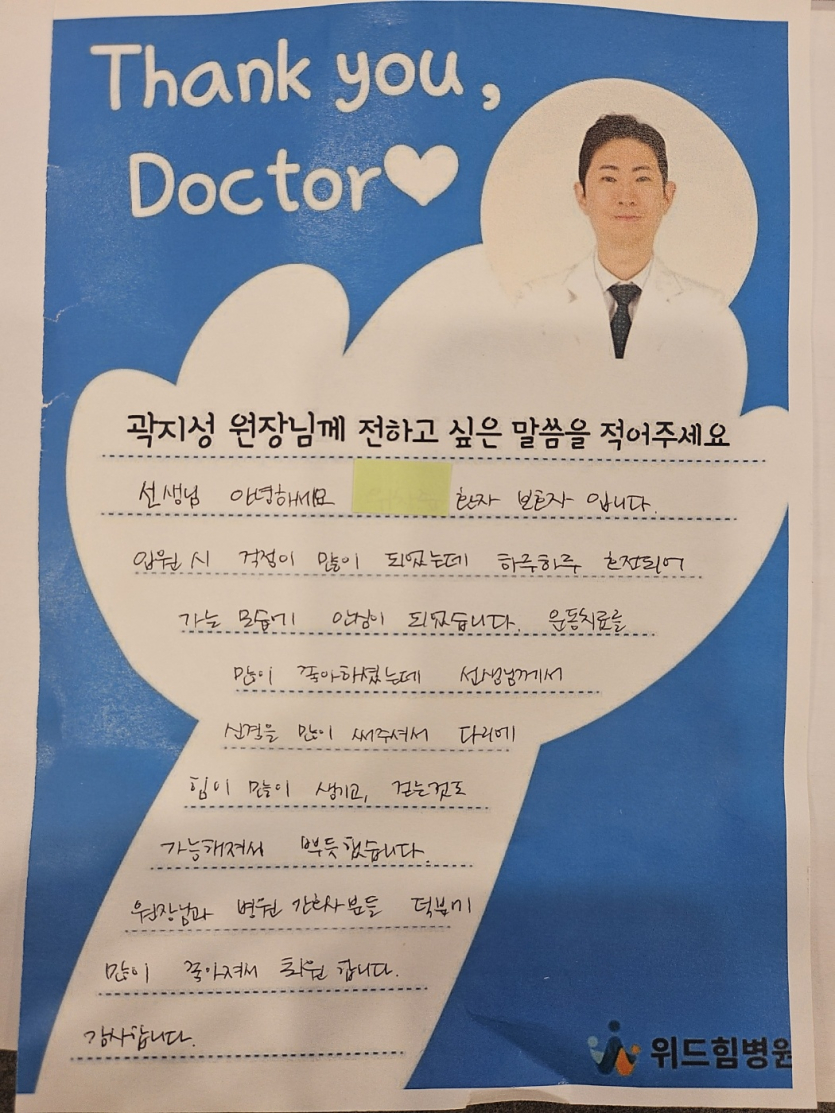 Thank you,
Doctor
곽지성 원장님께 전하고 싶은 말씀을 적어주세요
선생님 안녕하세요 환자 보호자 입니다.
입원 시 걱정이 많이 되었는데 하루하루 호전되어
가는 모습에 안심이 되었습니다. 운동치료를
많이 좋아하셨는데 선생님께서
신경을 많이 써주셔서 다리에
힘이 많이 생기고, 걷는것도
가능해져서 뿌듯했습니다.
원장님과 병원 간호사분들 덕분에
많이 좋아져서 퇴원 합니다.
감사합니다.
위드힘병원